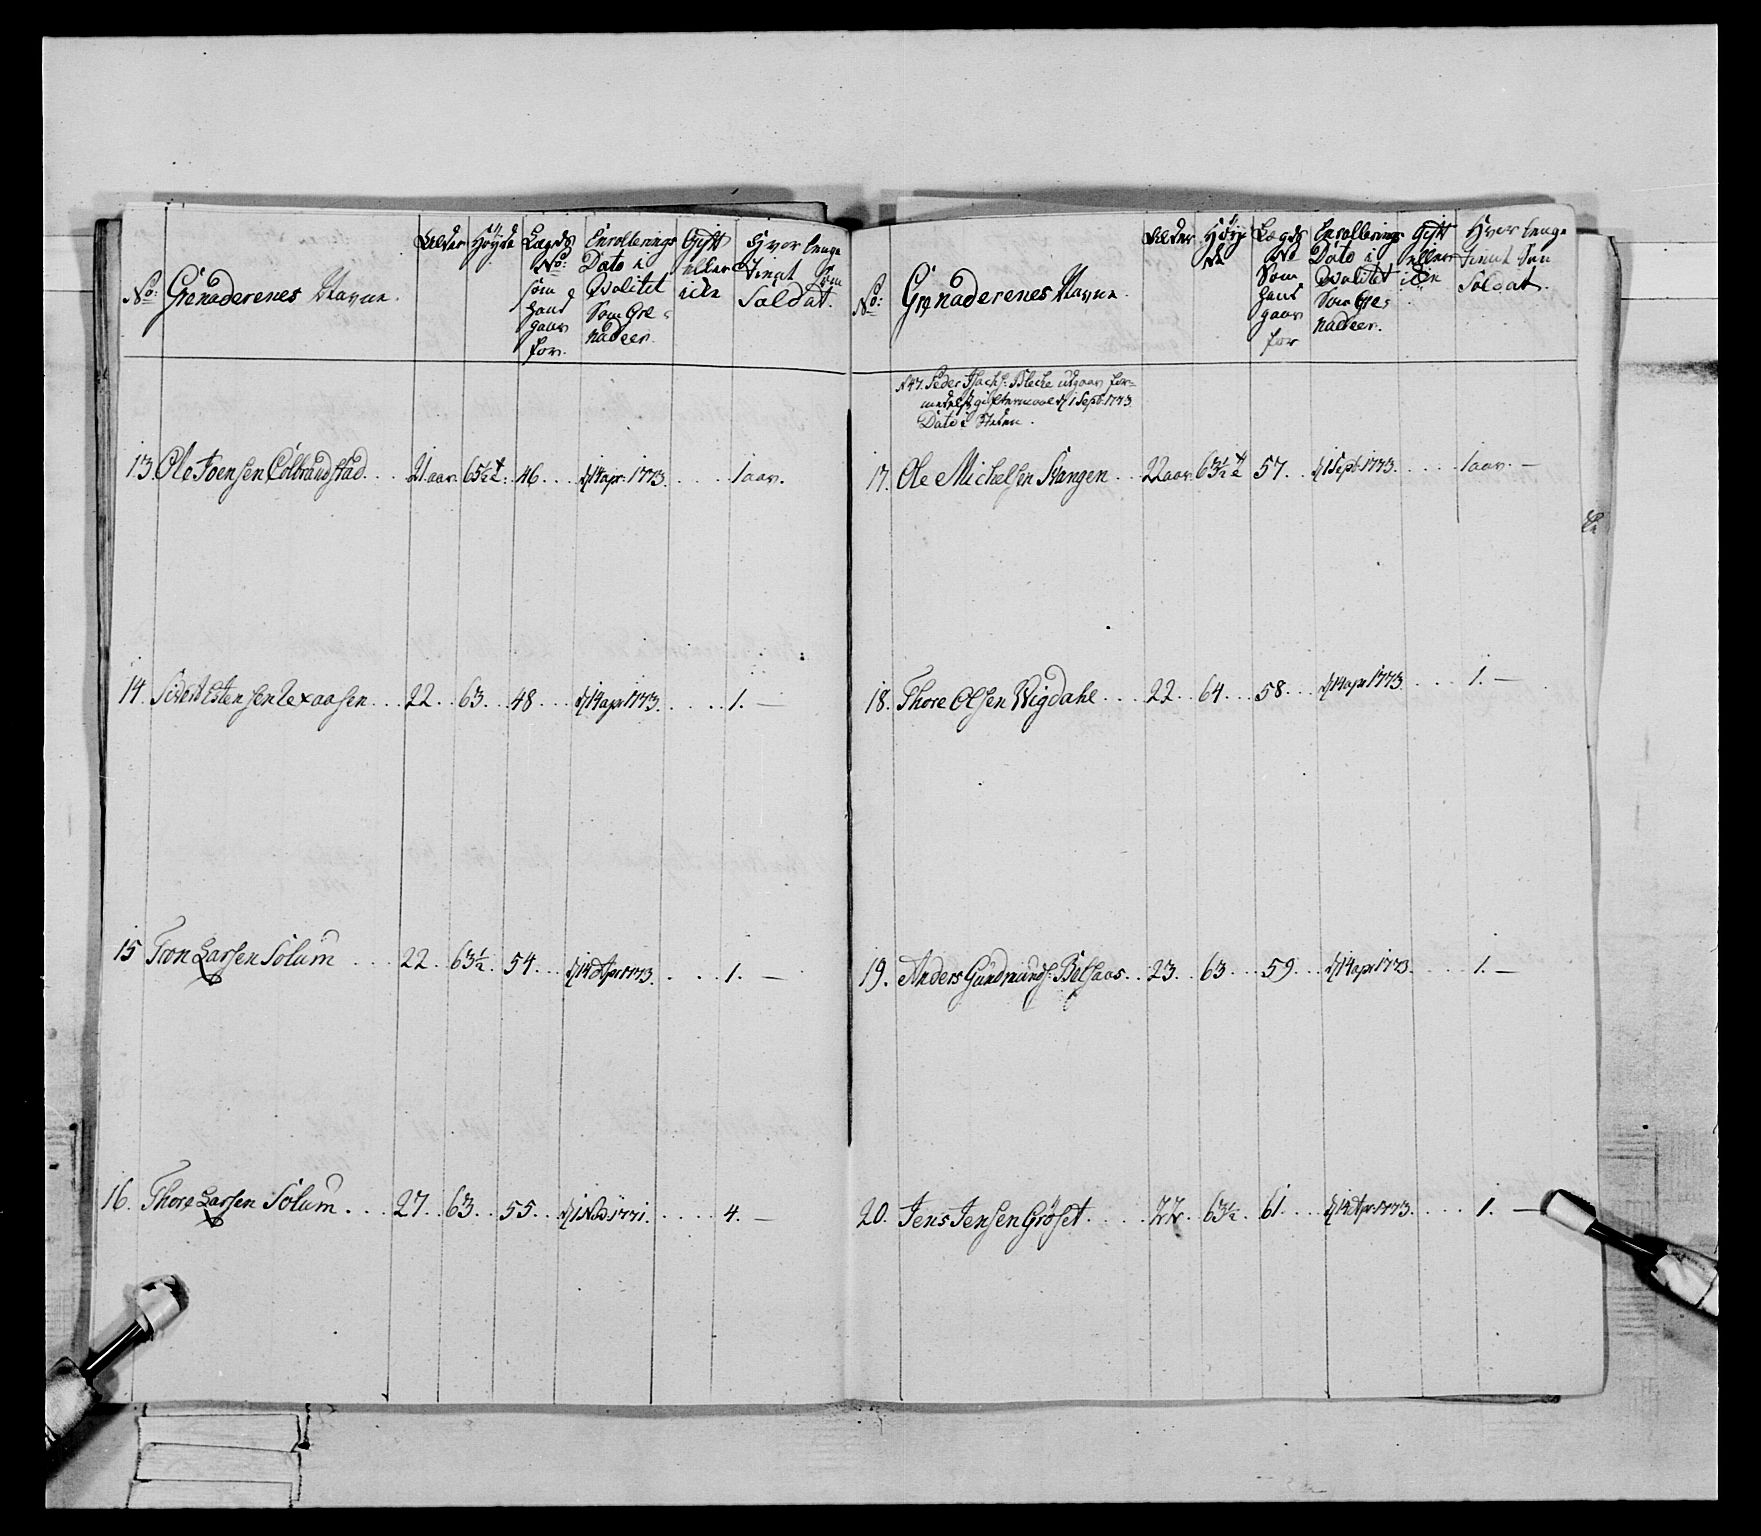 No: Grenaderenes Navne. Alder Høyde Lægds No: som hand gaar for. Enrollerings Dato i Qvalitet Som Grenadeer. Gift eller icke Hvor lenge tient som Soldat.
13 Ole Joensen Colbrandstad . . . 21 aar. 65½ t. 46 . . . d 14 apr: 1773. . . . . 1 aar.
14. Sivert Estensen . . . 22. . 63. . 48 . . . d 14 apr 1773. . . . . 1. —
15 Tron Larsen Solum . . . 22. . 63½. . 54. . . d 14 Apr 1773. . . . 1. —
16. Thore Larsen Solum . . . 27. . 63. . 55. . . d 1 1771. . . . . 4. —
No: Grenaderenes Navne. Alder Høyde Lægds No Som hand gaar for Enrollerings Dato i Qvalitet Som Grenadeer. Gift eller icke Hvor lenge tient Som Soldat.
N 47. Peder Isachs: Bleche udgaar for=
medelst giftermaal d 1 Sept: 1773.
Dato i Steden.
17. Ole Michelsen Svangen . . 22 aar. 63½ t 57. . d 1 Sept: 1773. . . . . 1 aar. —
18. Thore Olsen Wigdahl . . . 22. . 64. . . 58. . . d 14 apr 1773. . . . 1. —
19. Anders Gundmunds: Bolsaas . . 23. . 63. . . 59. . . d 14 apr 1773. . . . 1. —
20. Jens Jensen Grøset. . . . 22. . 63½. . 61. . . d 14 Apr: 1773. . . . 1. —